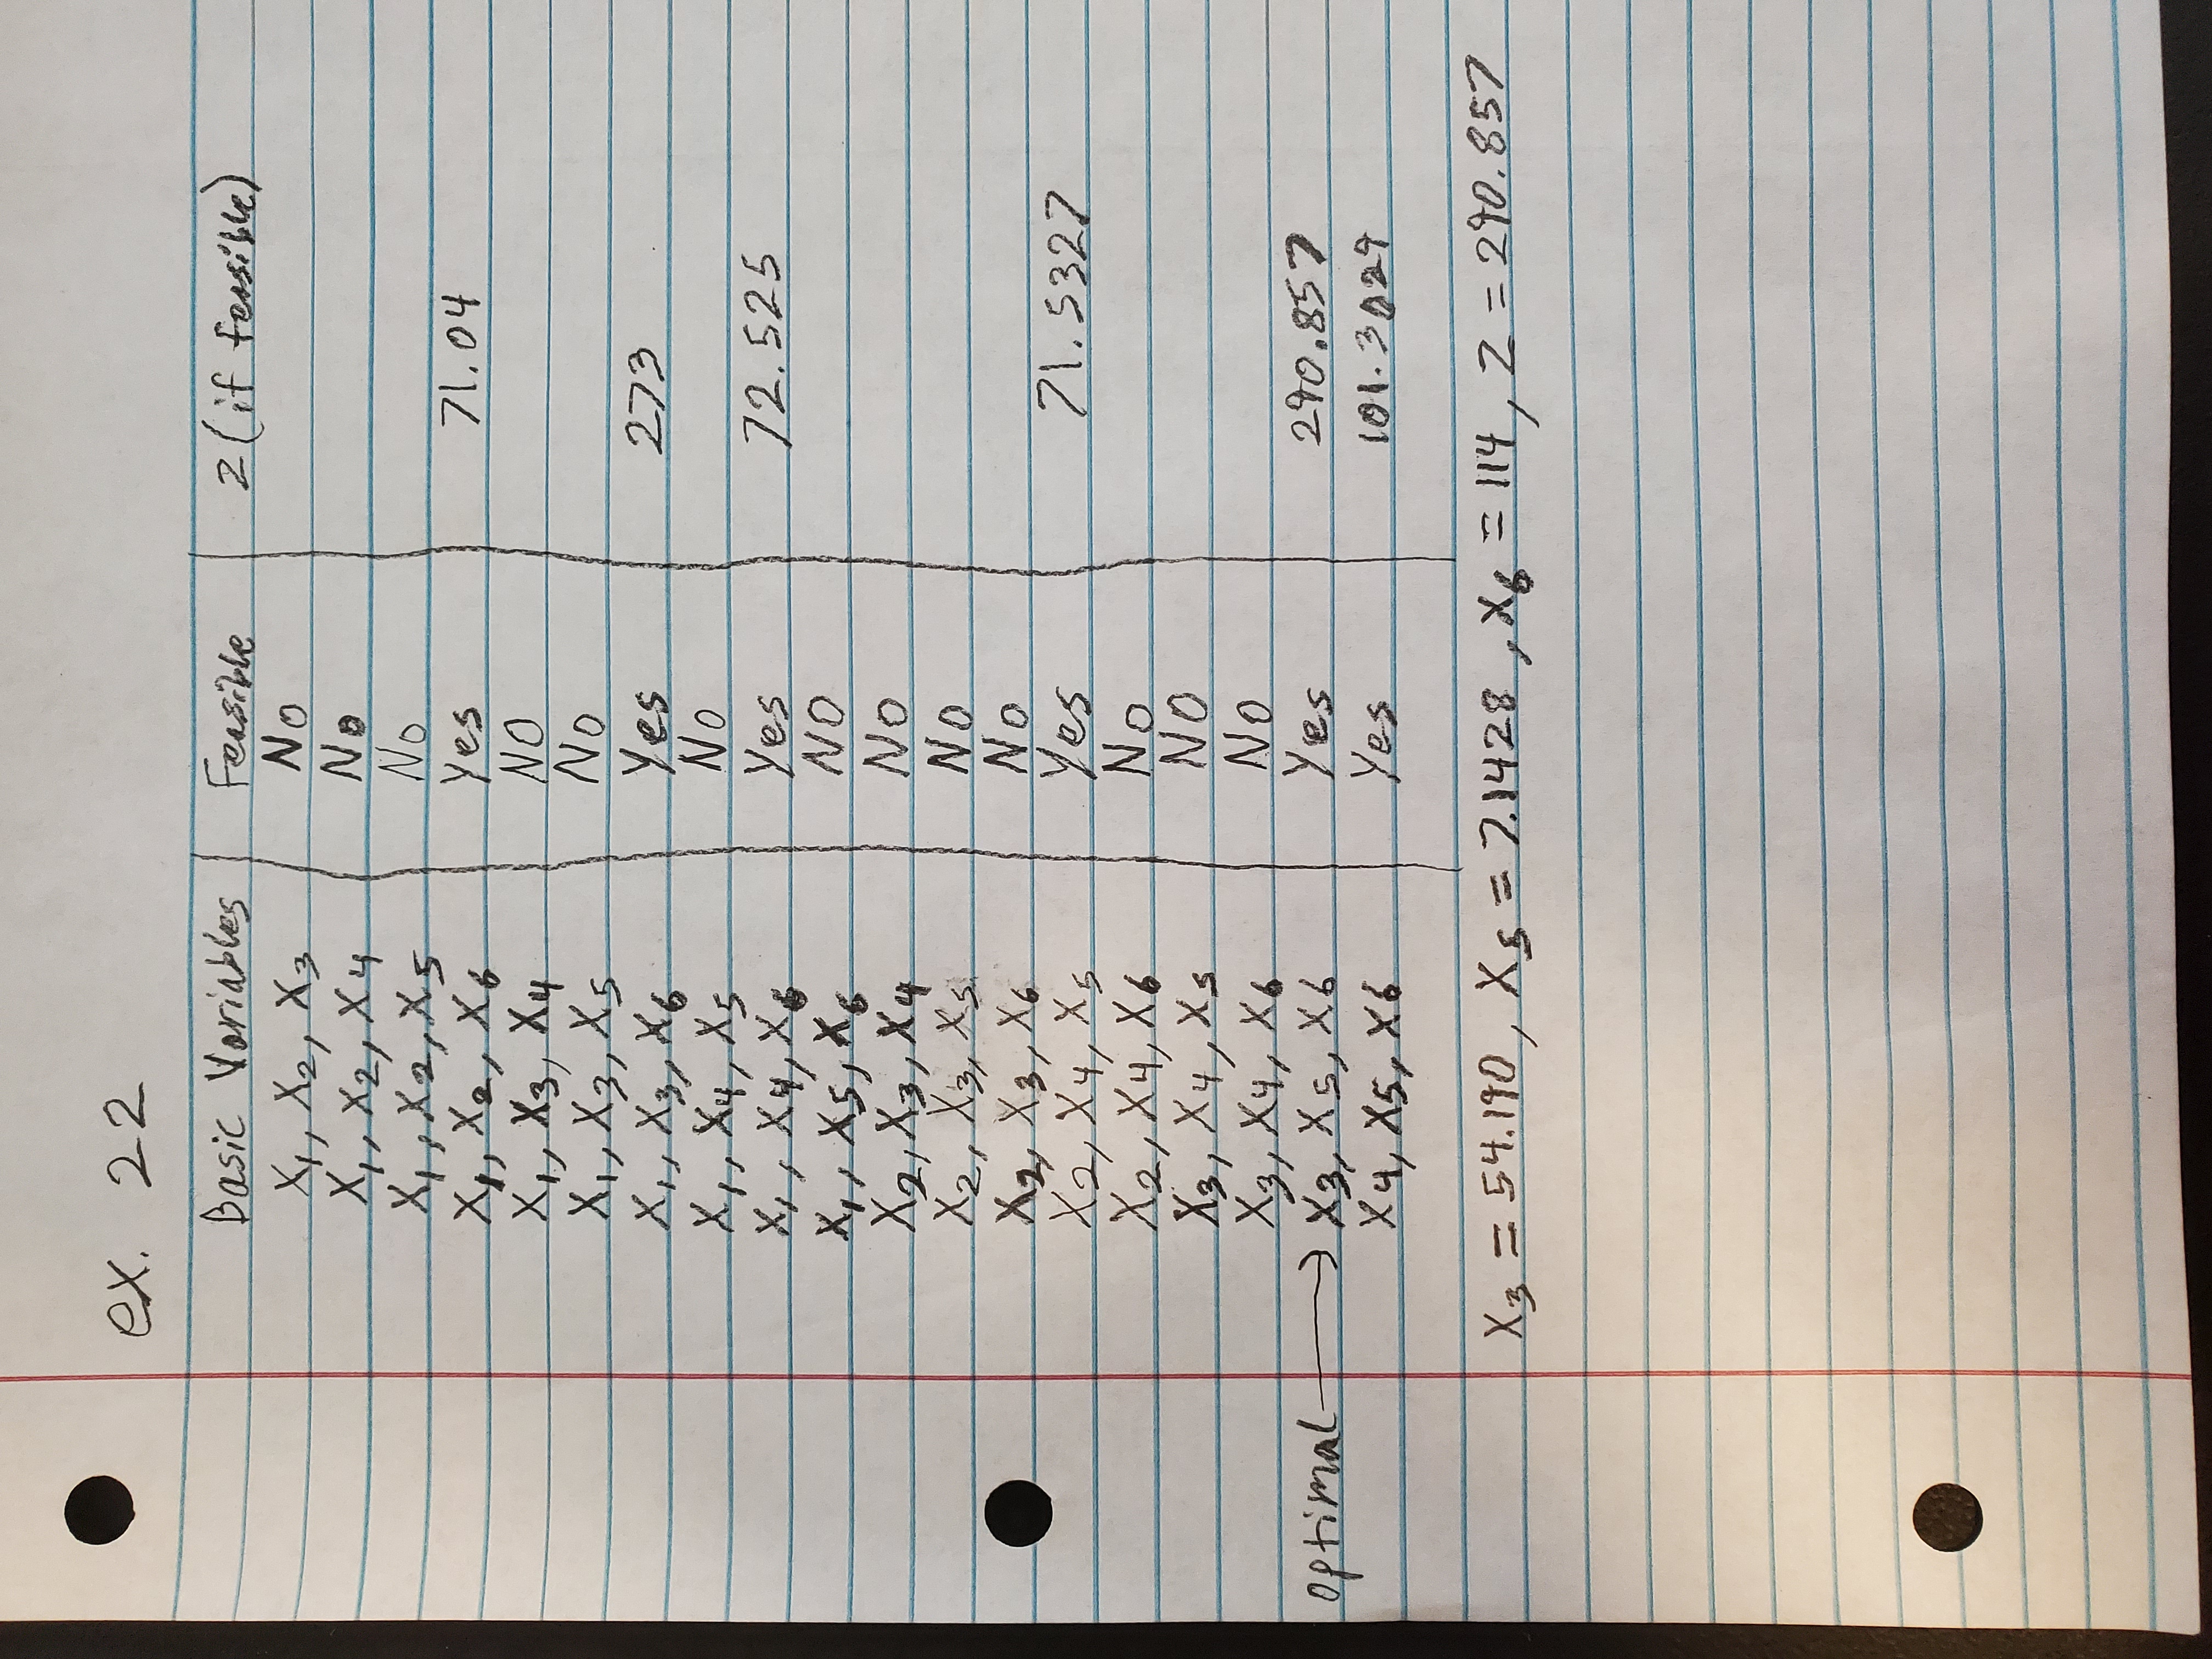 ex. 22
Basic Variables Feasible Z (if feasible)
X1, X2, X3 No
X1, X2, X4 No
X1, X2, X5 No
X1, X2, X6 Yes 71.04
X1, X3, X4 NO
X1, X3, X5 No
X1, X3, X6 Yes 273
X1, X4, X5 No
X1, X4, X6 Yes 72.525
X1, X5, X6 NO
X2, X3, X4 NO
X2, X3, X5 NO
X2, X3, X6 No
X2, X4, X5 Yes 71.5327
X2, X4, X6 No
X3, X4, X5 NO
X3, X4, X6 NO
optimal → X3, X5, X6 Yes 290.857
X4, X5, X6 Yes 101.3029
X3 = 54.190, X5 = 7.1428, X6 = 114, Z = 290.857